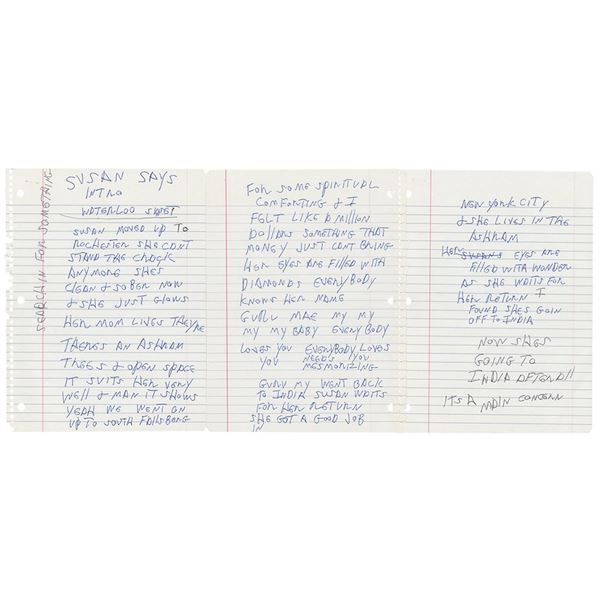 SEARCH IN FOR SOMETHING
SUSAN SAYS
INTRO
WATERLOO SWEET
SUSAN MOVED UP TO
ROCHESTER SHE CANT
STAND THE CRACK
ANYMORE SHES
CLEAN & SOBER NOW
& SHE JUST GLOWS
HER MOM LIVES THEYRE
THERES AN ASHRAM
TREES & OPEN SPACE
IT SUITS HER VERY
WELL & MAN IT SHOWS
YEAH WE WENT ON
UP TO SOUTH FALLSBERG
FOR SOME SPIRITUAL
COMFORTING & I
FELT LIKE A MILLION
DOLLARS SOMETHING THAT
MONEY JUST CANT BRING
HER EYES ARE FILLED WITH
DIAMONDS EVERYBODY
KNOWS HER NAME
GURU MAE MY MY
MY MY BABY EVERYBODY
LOVES YOU EVERYBODY LOVES
YOU NEEDS YOU
MESMORIZING
GURU MY WENT BACK
TO INDIA SUSAN WAITS
FOR HER RETURN
SHE GOT A GOOD JOB
IN
NEW YORK CITY
& SHE LIVES IN THE
ASHRAM
HER SUSANS EYES ARE
FILLED WITH WONDER
AS SHE WAITS FOR
HER RETURN I
FOUND SHES GOIN
OFF TO INDIA
NOW SHES
GOING TO
INDIA
ITS A MAIN CONCERN